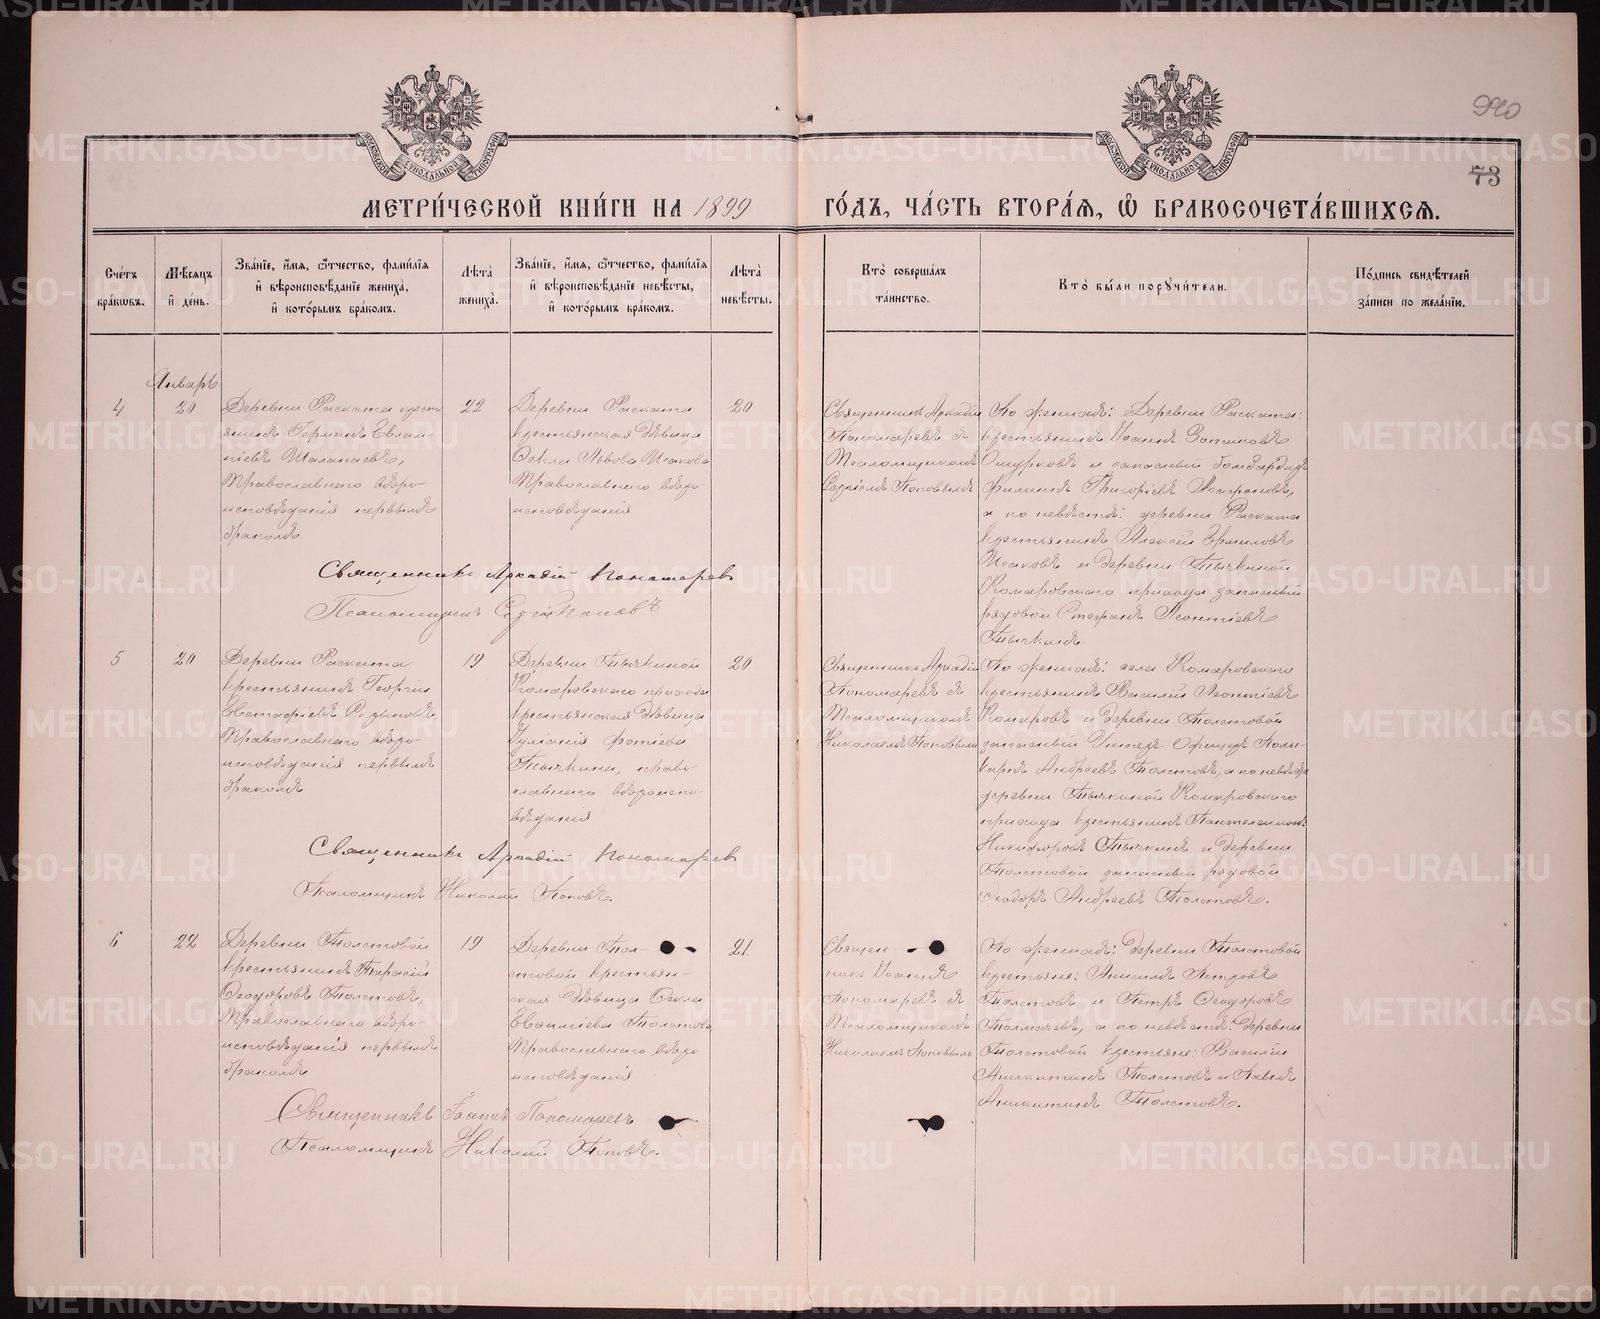 990
73
МЕТРИ́ЧЕСКОЙ КНИ́ГИ НА 1899 ГО́ДЪ, ЧА́СТЬ ВТОРА́Я, Ѽ БРАКОСОЧЕТА́ВШИХСЯ.
Сче́тъ
бра́кѡвъ.
Мѣ́сяцъ
и҆ де́нь.
Зва́нїе, и҆́мя, ѻ҆́тчество, фами́лїя
и҆ вѣроисповѣ́данїе жениха̀,
и҆ кото́рымъ бра́комъ.
Лѣ́та
жениха̀.
Зва́нїе, и҆́мя, ѻ҆́тчество, фами́лїя
и҆ вѣроисповѣ́данїе невѣ́сты,
и҆ кото́рымъ бра́комъ.
Лѣ́та
невѣ́сты.
Кто̀ соверша́лъ
та́инство.
Кто̀ бы́ли порꙋчи́тели.
По́дпись свидѣ́телей
за́писи по жела́нїю.
Январь
4
20
Деревни Раската крестья
янинъ Германъ Евлам-
піевъ
Православнаго вѣро-
исповѣданія первымъ
бракомъ
22
Деревни Раската
крестьянская дѣвица
Ѳекла Львова Исакова
Православнаго вѣро-
исповѣданія
20
Священникъ Аркадій
Пономаревъ съ
Псаломщикомъ
Сергіемъ Поповымъ
По женихѣ: Деревни Раската:
крестьянинъ Іоаннъ Зотиковъ
Ошурковъ и запасный бомбардиръ
Филиппъ Григоріевъ
а по невѣстѣ: деревни Раската
крестьянинъ Алексій Ермиловъ
Исаковъ и деревни Тычкиной
Комаровскаго прихода запасный
рядовой Стефанъ Леонтіевъ
Тычкинъ
Священникъ Аркадій Пономаревъ
Псаломщикъ Сергій Поповъ
5
20
Деревни Раската
крестьянинъ Георгій
Евстафіевъ
Православнаго вѣро-
исповѣданія первымъ
бракомъ
19
Деревни Тычкиной
Комаровскаго прихода
крестьянская дѣвица
Іуліанія Фотіева
Тычкина, право-
славнаго вѣроиспо-
вѣданія
20
Священникъ Аркадій
Пономаревъ съ
Псаломщикомъ
Николаемъ Поповымъ
По женихѣ: села Комаровскаго
крестьянинъ Василій Леонтіевъ
Комаровъ и деревни Толстовой
запасный Унтеръ-Офицеръ Поли-
карпъ Андреевъ Толстовъ, а по невѣстѣ
деревни Тычкиной Комаровскаго
прихода крестьянинъ Пантелеимонъ
Никифоровъ Тычкинъ и деревни
Толстовой запасный рядовой
Ѳеодоръ Андреевъ Толстовъ.
Священникъ Аркадій Пономаревъ
Псаломщикъ Николай Поповъ.
6
22
Деревни Толстовой
крестьянинъ Тарасій
Ѳеодоровъ Толстовъ,
Православнаго вѣро-
исповѣданія первымъ
бракомъ
19
Деревни Тол-
стовой крестьян-
ская дѣвица Ѳекла
Евсигніева Толстова
Православнаго вѣро
исповѣданія
21.
Священ-
никъ Іоаннъ
Пономаревъ съ
Псаломщикомъ
Николаемъ Поповымъ
По женихѣ: Деревни Толстовой
крестьяне: Анисимъ Петровъ
Толстовъ и Петръ Ѳеодоровъ
Толмачевъ, а по невѣстѣ: Деревни
Толстовой крестьяне: Василій
Аникитинъ Толстовъ и Павелъ
Аникитинъ Толстовъ.
Священникъ Іоаннъ Пономаревъ
Псаломщикъ Николай Поповъ.
METRIKI.GASO-URAL.RU